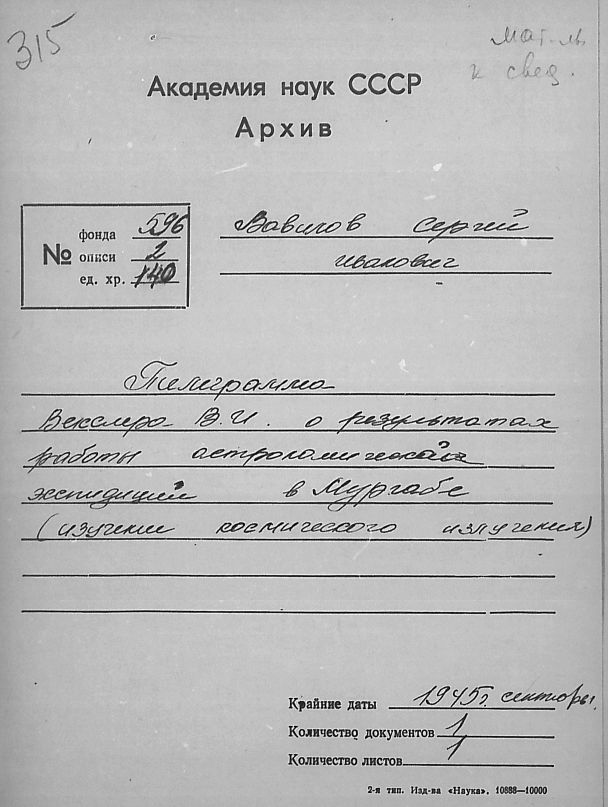 315
мат-лы
к свед.
Академия наук СССР
Архив
№
фонда 596
описи 2
ед. хр. 140
Вавилов Сергей
Иванович
Телеграмма
Векслера В.И. о результатах
работы астрономической
экспедиции в Мургабе
(изучение космического излучения)
Крайние даты 1945 г. сентябрь.
Количество документов 1
Количество листов 1
2-я тип. Изд-ва «Наука». 10888—10000